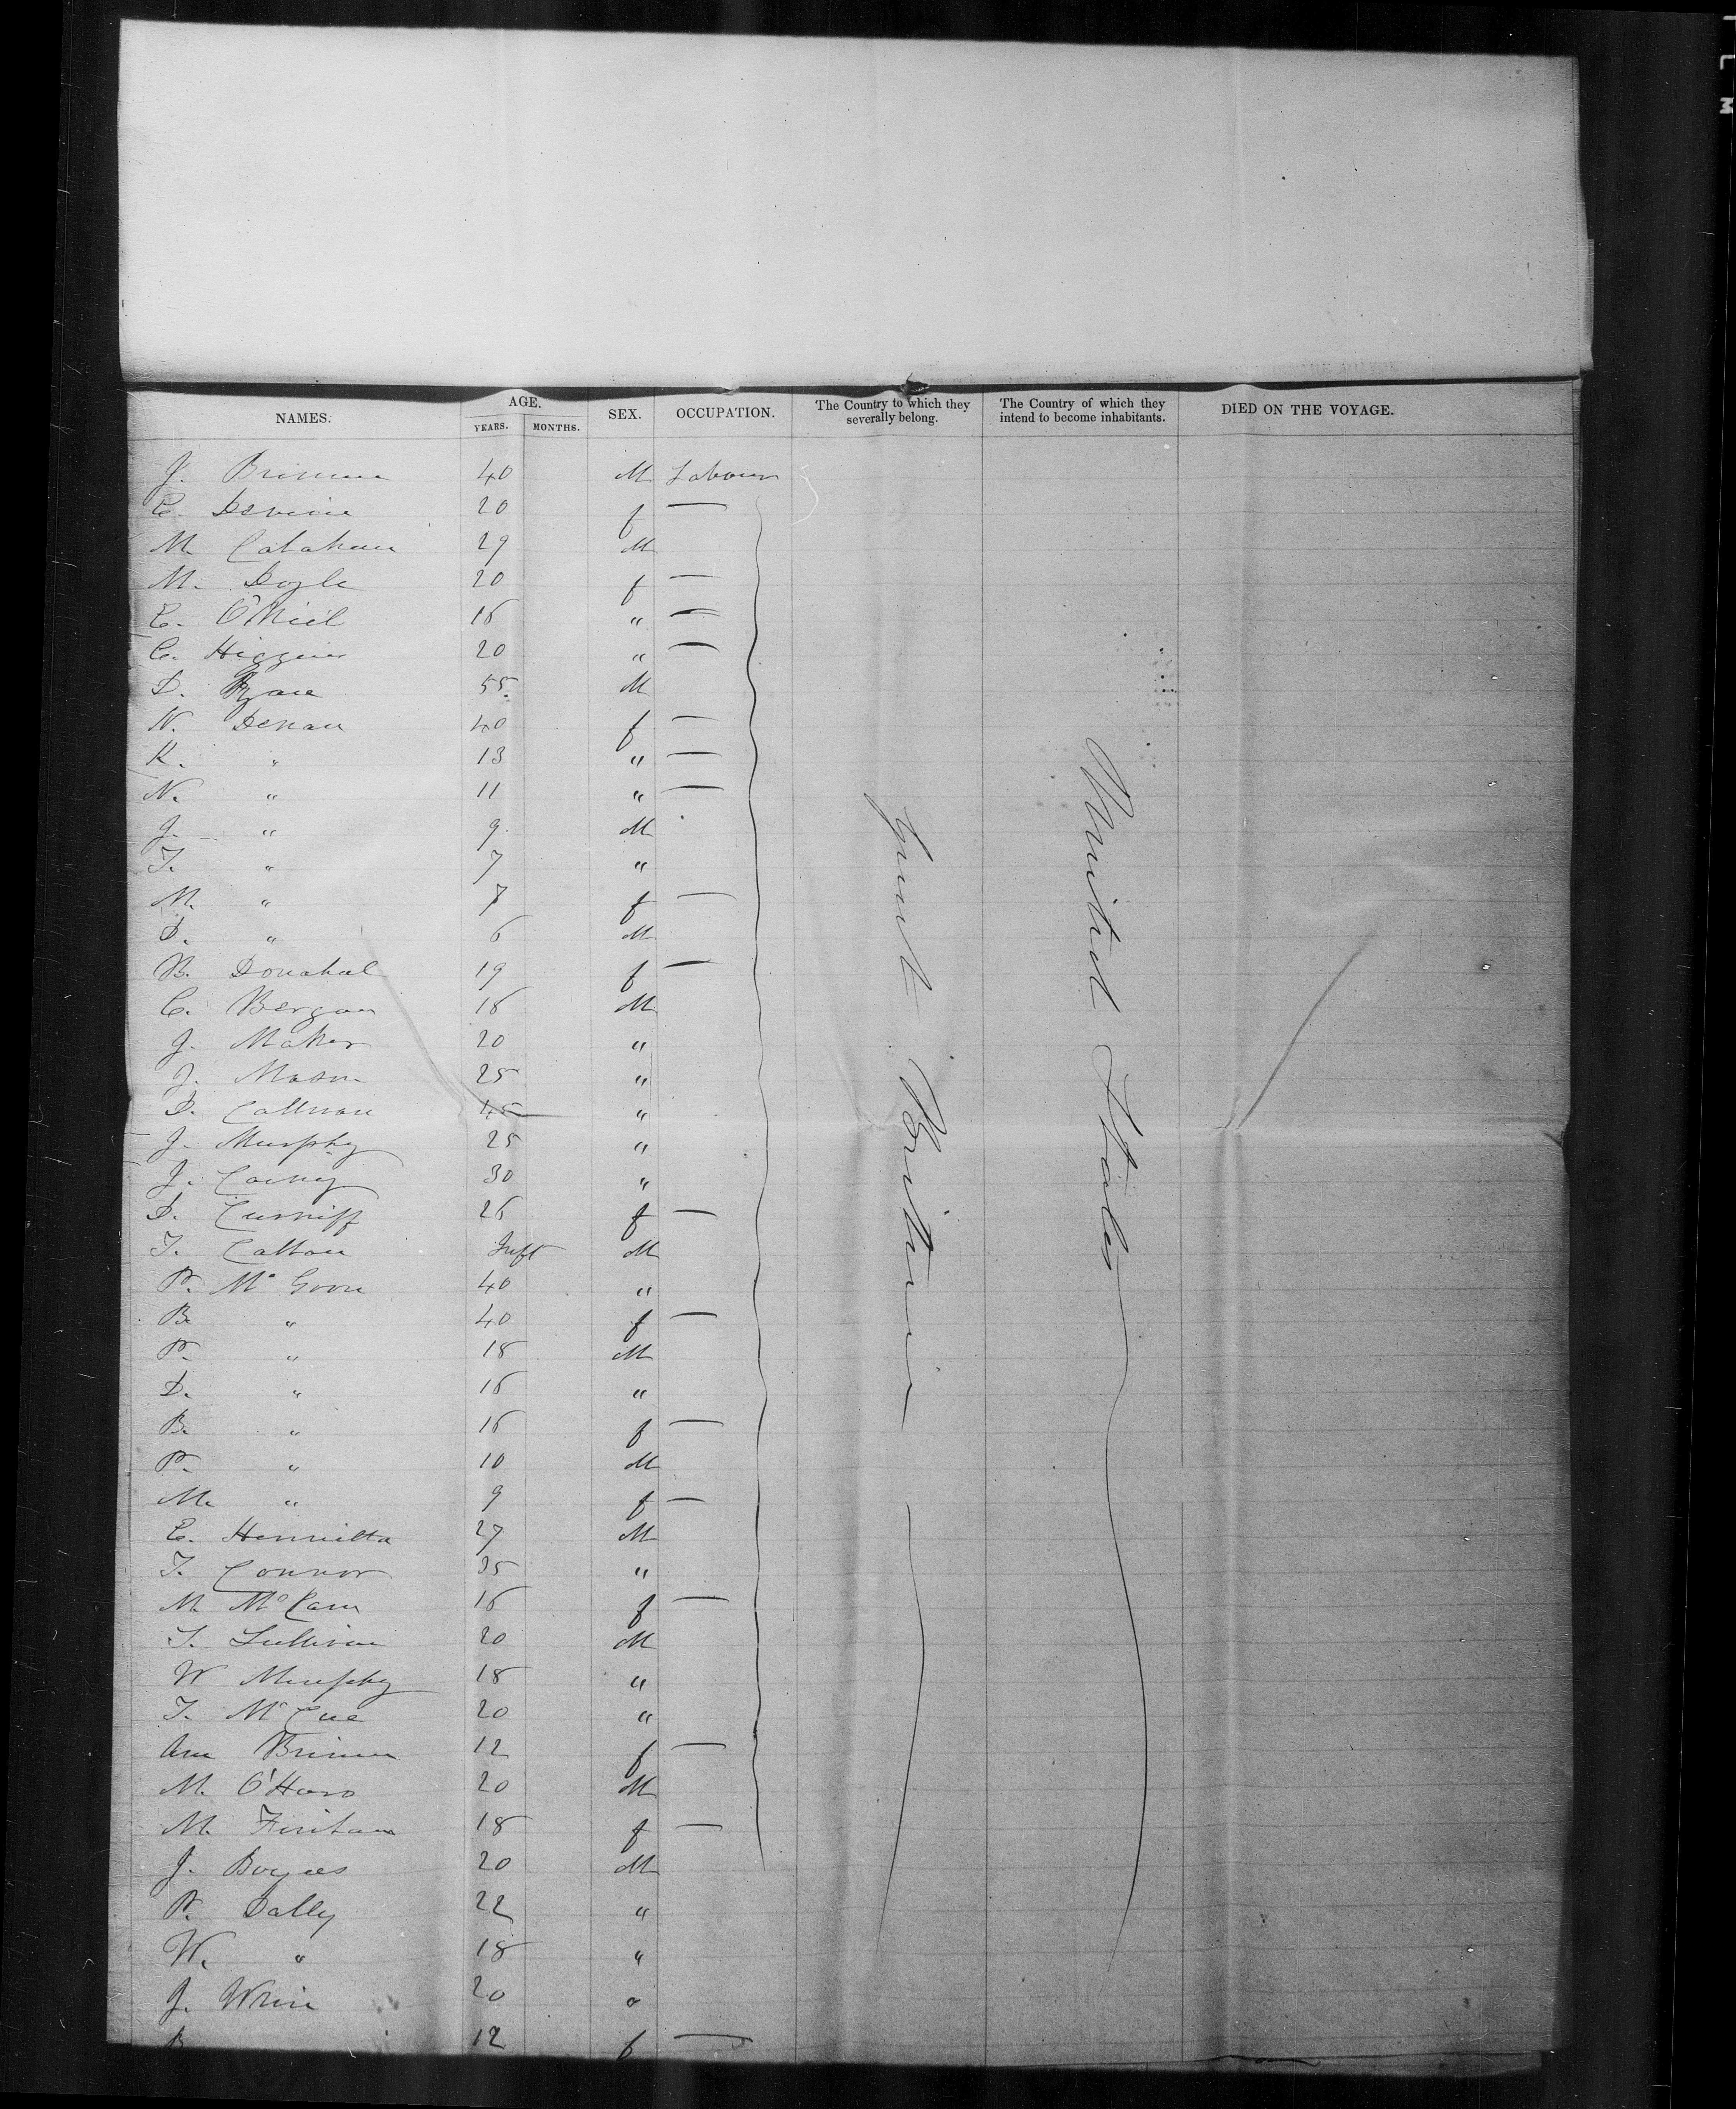 NAMES. AGE. SEX. OCCUPATION. The Country to which they severally belong. The Country of which they intend to become inhabitants. DIED ON THE VOYAGE.
YEARS. MONTHS.
J. 40 M Labour
E. Devine 20 f —
M Calahan 29 M
M. Doyle 20 f —
E. O'Neil 16 " —
C. Higgins 20 " —
D. Ryan 55 M
N. Denan 40 f —
K. " 13 " —
N. " 11 " —
J. " 9 M
T. " 7 "
M. " 7 f —
D. " 6 M
B. Donahal 19 f —
C. Bergan 18 M
J. Maher 20 "
J. Mason 25 "
D. 45 "
J. Murphy 25 "
J. 30 "
D. Cunniff 26 f —
T. Calton Inft M
P. McGoon 40 "
B. " 40 f —
P. " 18 M
D. " 16 "
B. " 16 f —
P. " 10 M
M. " 9 f —
E. Henrietta 27 M
T. Connor 35 "
M McCann 16 f —
T. Sullivan 20 M
W Murphy 18 "
T. McCue 20 "
Ann 12 f —
M. O'Hara 20 M
M. 18 f —
J. 20 M
P. Dally 22 "
W. " 18 "
J. 20 "
12 f —
Great Britain
United States